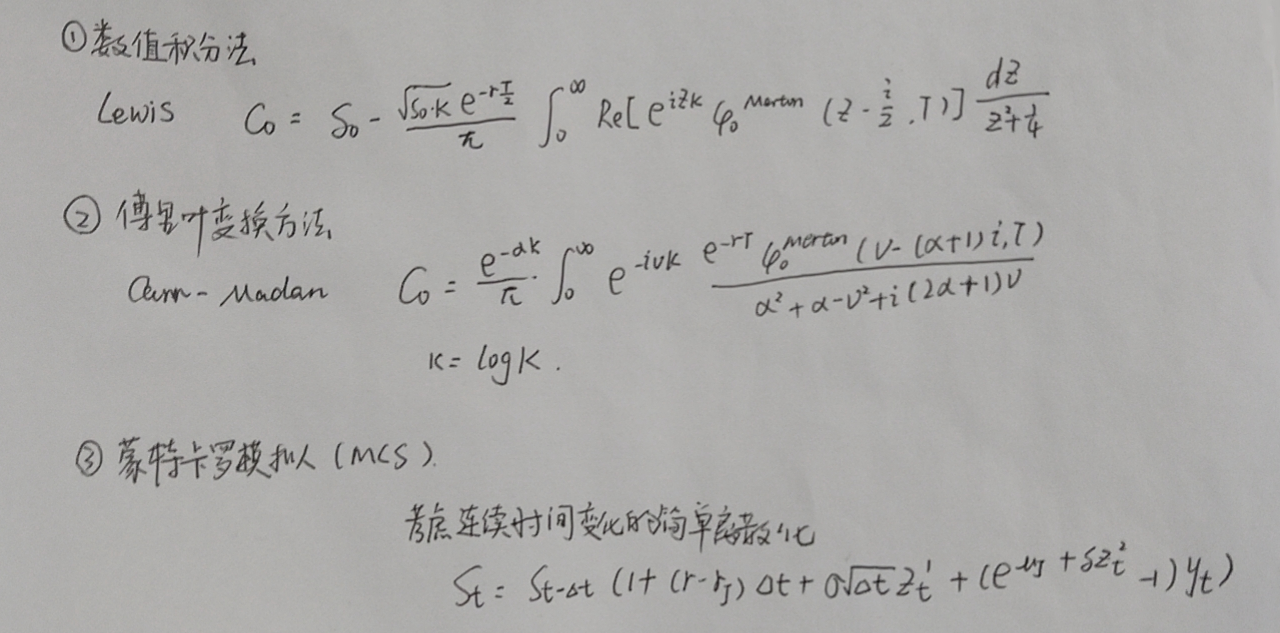 ①数值积分法
Lewis C₀ = S₀ - \frac{\sqrt{S₀·K} e^{-r\frac{T}{2}}}{π} ∫₀^∞ Re[e^{izk} φ₀^{Merton}(z-\frac{i}{2},T)] \frac{dz}{z²+\frac{1}{4}}
② 傅里叶变换方法
Carr-Madan C₀ = \frac{e^{-αk}}{π}·∫₀^∞ e^{-ivk} \frac{e^{-rT} φ₀^{merton}(v-(α+1)i,T)}{α²+α-v²+i(2α+1)v}
k = log K.
③ 蒙特卡罗模拟(MCS).
考虑连续时间变化的简单离散化
S_t = S_{t-Δt} (1+(r-r_J)Δt+σ\sqrt{Δt}Z_t^1+(e^{μ_J+δZ_t^2}-1)y_t)